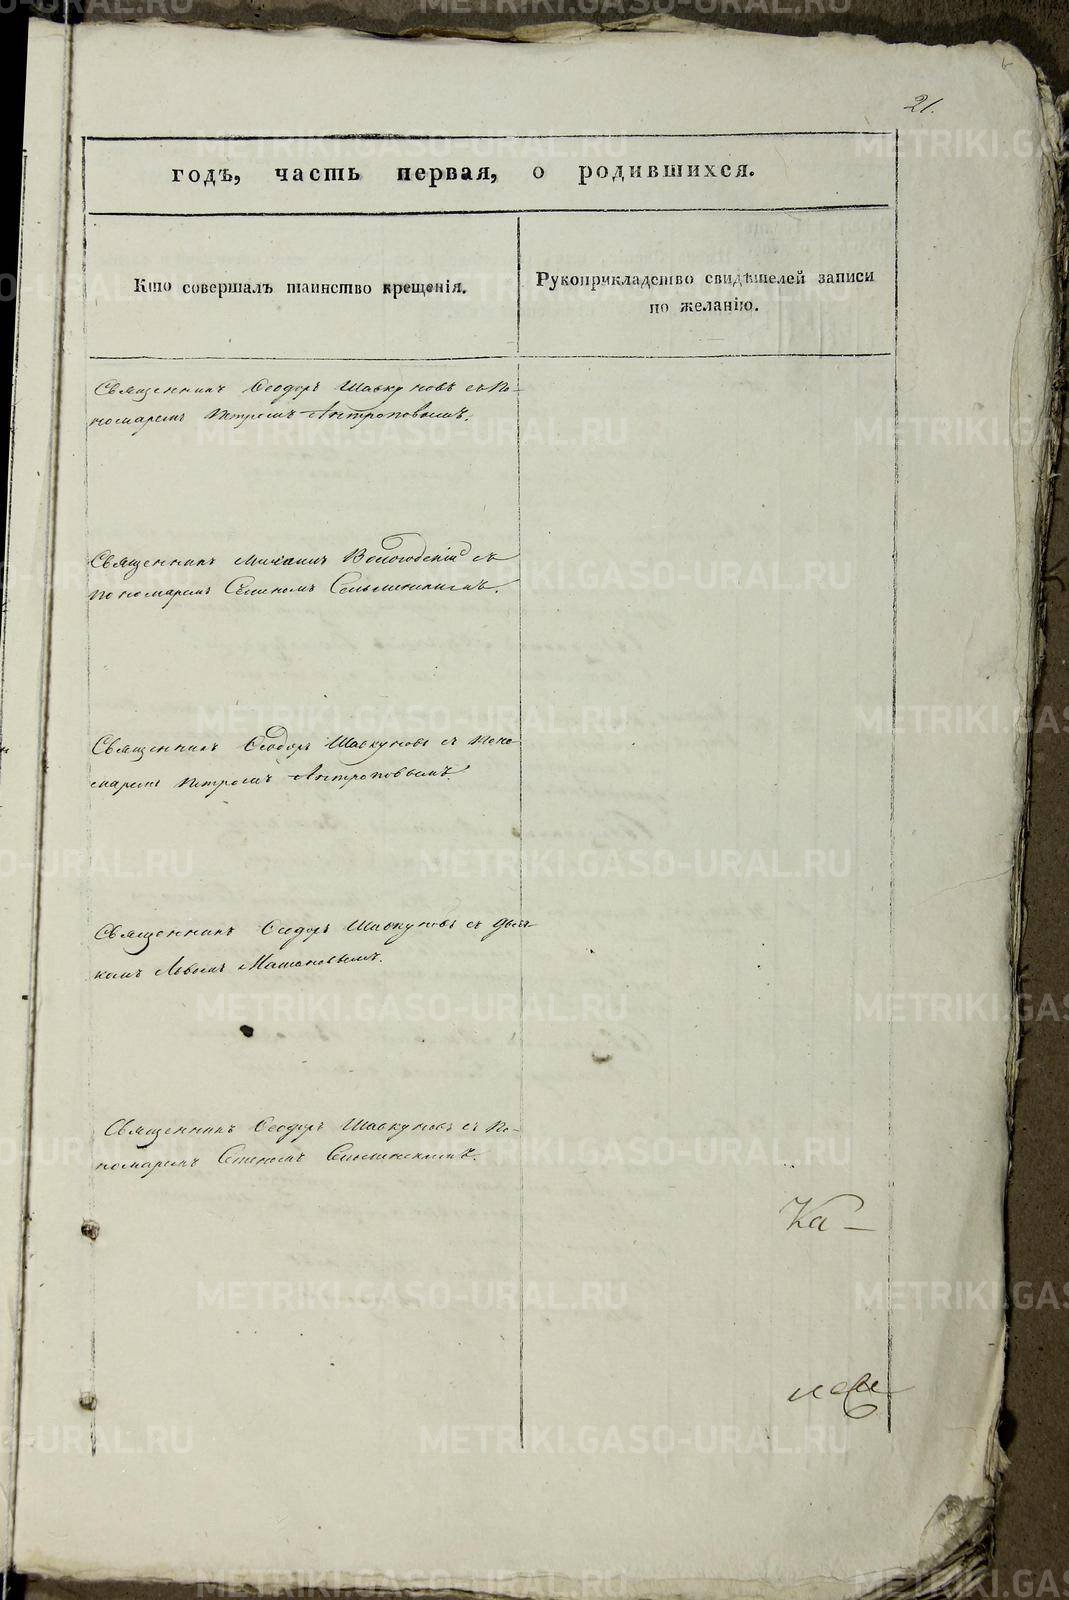 21.
годъ, часть первая, о родившихся.
Кто совершалъ таинство крещенія.
Рукоприкладство свидѣтелей записи
по желанію.
Священникъ Ѳеодоръ Шавкуновъ съ по-
номаремъ Петромъ Антроповымъ.
Священникъ Михаилъ Вологодскій съ
пономаремъ
Священникъ Ѳеодоръ Шавкуновъ съ поно-
маремъ Петромъ Антроповымъ.
Священникъ Ѳеодоръ Шавкуновъ съ дьяч-
комъ Львомъ
Священникъ Ѳеодоръ Шавкуновъ съ по-
номаремъ
Ка-
METRIKI.GASO-URAL.RU